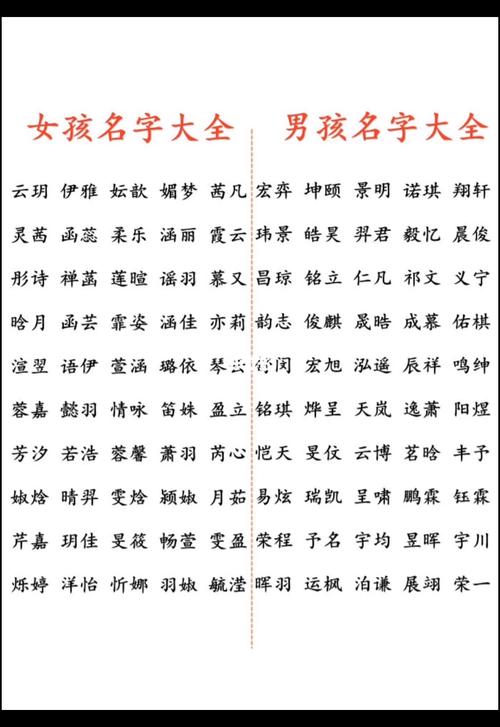 女孩名字大全 男孩名字大全
云玥 伊雅 妘歆 媚梦 茜凡 宏弈 坤颐 景明 诺琪 翔轩
灵茜 函蕊 柔乐 涵丽 霞云 玮景 皓昊 羿君 毅忆 晨俊
彤诗 禅菡 莲暄 谣羽 慕又 昌琼 铭立 仁凡 祁文 义宁
晗月 函芸 霏姿 涵佳 亦莉 韵志 俊麒 晟晧 成慕 佑棋
渲翌 语伊 萱涵 璐依 琴 闵 宏旭 泓遥 辰祥 鸣绅
蓉嘉 懿羽 情咏 笛姝 盈立 铭琪 烨呈 天岚 逸萧 阳煜
芳汐 若浩 蓉馨 萧羽 芮心 恺天 旻仗 云博 茗晗 丰予
婌焓 晴羿 雯焓 颍婌 月茹 易炫 瑞凯 呈啸 鹏霖 钰霖
芹嘉 玥佳 旻筱 畅萱 雯盈 荣程 予名 宇均 昱晖 宇川
烁婷 洋怡 忻娜 羽婌 毓滢 晖羽 运枫 泊谦 展翊 荣一